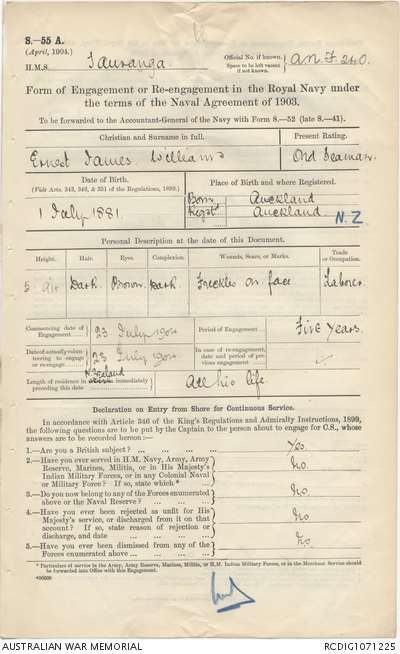 S.—55 A.
(April, 1904.)
H.M.S. Tauranga. Official No. if known. Space to be left vacant if not known. } A.N.F. 240.
Form of Engagement or Re-engagement in the Royal Navy under
the terms of the Naval Agreement of 1903.
To be forwarded to the Accountant-General of the Navy with Form S.—52 (late S.—41).
Christian and Surname in full. Present Rating.
Ernest James Williams Ord Seaman.
Date of Birth. Place of Birth and where Registered.
(Vide Arts. 343, 346, & 351 of the Regulations, 1899.)
Born Auckland
1 July 1881. Regst Auckland. N.Z
Personal Description at the date of this Document.
Height. Hair. Eyes. Complexion. Wounds, Scars, or Marks. Trade or Occupation.
Dark Brown Dark. Freckles on face Laborer
Commencing date of Engagement } 23 July 1904 Period of Engagement Five Years.
Date of actually volunteering to engage or re-engage } 23 July 1904. In case of re-engagement, date and period of previous engagement }
Length of residence in N. Zealand immediately preceding this date } All his life.
Declaration on Entry from Shore for Continuous Service.
In accordance with Article 346 of the King's Regulations and Admiralty Instructions, 1899,
the following questions are to be put by the Captain to the person about to engage for C.S., whose
answers are to be recorded hereon:—
1.—Are you a British subject? ... ... ... ... Yes.
2.—Have you ever served in H.M. Navy, Army, Army
Reserve, Marines, Militia, or in His Majesty's
Indian Military Forces, or in any Colonial Naval
or Military Force? If so, state which* ... ... No.
3.—Do you now belong to any of the Forces enumerated
above or the Naval Reserve? ... ... ... No.
4.—Have you ever been rejected as unfit for His
Majesty's service, or discharged from it on that
account? If so, state reason of rejection or
discharge, and date ... ... ... ... No.
5.—Have you ever been dismissed from any of the
Forces enumerated above ... ... ... ... No.
* Particulars of service in the Army, Army Reserve, Marines, Militia, or H.M. Indian Military Forces, or in the Merchant Service should
be forwarded into Office with this Engagement.
AUSTRALIAN WAR MEMORIAL RCDIG1071225